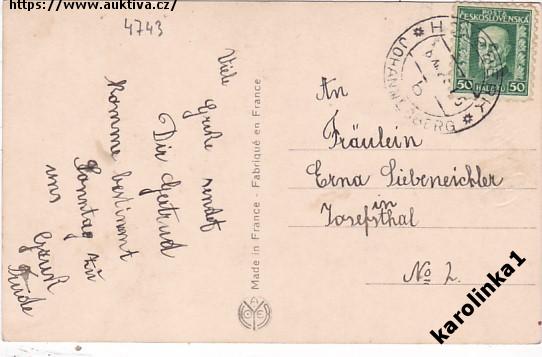 https://www.auktiva.cz/
4743
Viele
Grüße sendet
Dir Gertrud
komme bestimmt
Sonntag zu
uns
Gruß
Trude
Made in France - Fabriqué en France
POSTA
ČESKOSLOVENSKÁ
50 HALÉŘŮ 50
JOHANNESBERG
An
Fräulein
Erna Siebeneichler
in
Josefsthal
No 2.
karolinka1